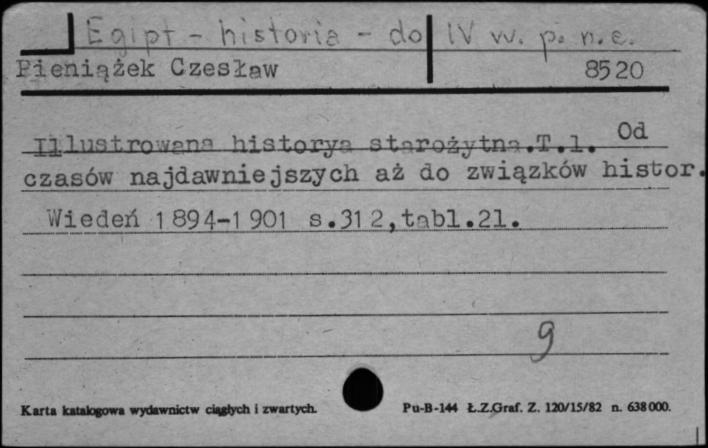 Egipt - historia - do IV w. p. n. e.
Pieniążek Czesław 8520
Illustrowana historya starożytna.T.1. Od
czasów najdawniejszych aż do związków histor.
Wiedeń 1894-1901 s.312,tabl.21.
g
Karta katalogowa wydawnictw ciągłych i zwartych. Pu-B-144 Ł.Z.Graf. Z. 120/15/82 n. 638000.